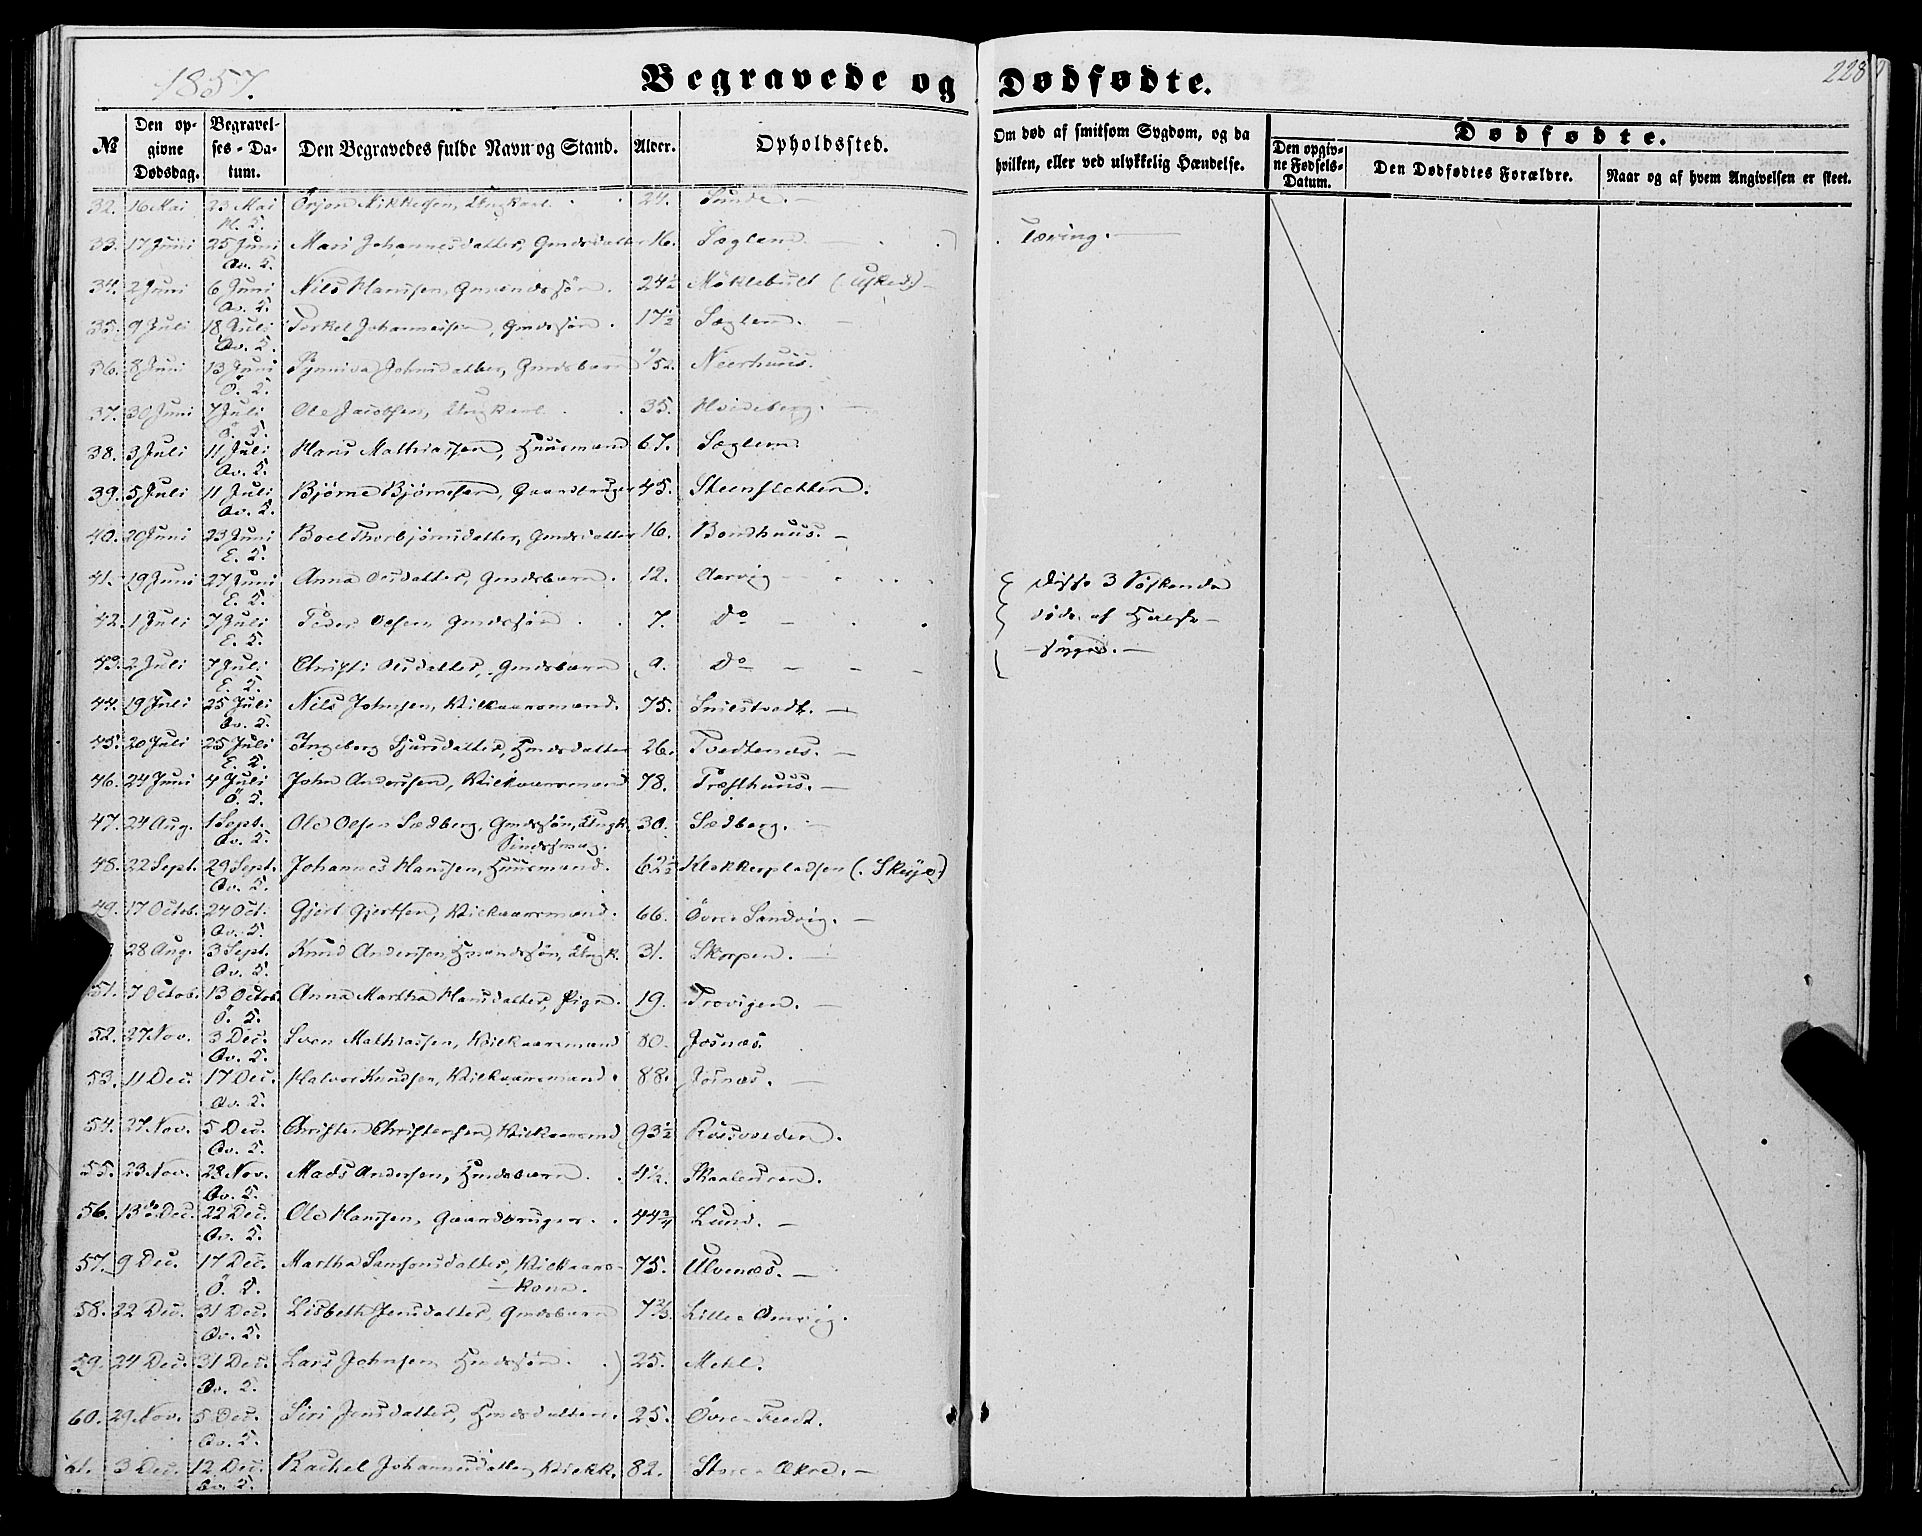 1857.
Begravede og Dødfødte.
228
№
Den opgivne Dødsdag.
Begravelses-Datum.
Den Begravedes fulde Navn og Stand.
Alder.
Opholdssted.
Om død af smitsom Sygdom, og da hvilken, eller ved ulykkelig Hændelse.
Dødfødte.
Den opgivne Fødsels-Datum.
Den Dødfødtes Forældre.
Naar og af hvem Angivelsen er skeet.
32. 16 Mai 23 Mai Mikkelsen, Ungkarl 27. Sunde.
33. 17 Juni 25 Juni Mari Johannesdatter, Gmdsdatter 16. Sæglem Tæring.
34. 2 Juni 6 Juni Nils Hanssen, Gmandssøn. 24½ Møklebust
35. 9 Juli 18 Juli Torkel Johannessen, Gmdssøn. 17½ Sæglem.
36. 8 Juni 13 Juni Synniva Johnsdatter, Gmdsbarn Neerhuus.
37. 30 Juni 7 Juli Ole Jacobsen, Ungkarl 35. Hvideberg.
38. 3 Juli 11 Juli Hans Mathiassen, Huusmand 67. Sæglem
39. 5 Juli 11 Juli Bjørne Bjørnesen, Gaardbruger 45. Steensletten.
40. 20 Juni 23 Juni Boel Thorbjørnsdatter, Gmdsdatter 16. Bondhuus.
41. 19 Juni 27 Juni Anna Olsdatter, Gmdsbarn. 12. Aarvig Disse 3 Søskende
42. 1 Juli 7 Juli Peder Olsen, Gmdssøn 7. Do døde af Halsse-
43. 2 Juli 7 Juli Christi Olsdatter, Gmdsbarn 9. Do
44. 19 Juli 25 Juli Nils Johnsen, Vilkaarsmand. 75. Snilstvedt.
45. 20 Juli 25 Juli Ingeborg Sjursdatter, Hmdsdatter 26. Tvedtenæs.
46. 24 Juni 4 Juli John Anderssen, Vilkaarsmand 78. Træsthuus.
47. 24 Aug. 1 Sept. Ole Olsen Sædberg, Gmdssøn, Ungk. 30. Sædberg.
Sindssvag.
48. 22 Sept. 29 Sept. Johannes Hanssen, Huusmand. 62½ Klokkerpladsen
49. 17 Octob. 24 Oct. Gjert Gjertsen, Vilkaarsmand. 66. Øvre Sandvig.
28 Aug. 3 Sept. Knud Anderssen, Hmandssøn, Ungk. 31. Skorpen.
51. 7 Octob. 13 Octob. Anna Martha Hansdatter, Pige. 19. Trovigen.
52. 27 Nov. 3 Dec. Sven Mathiassen, Vilkaarsmand 80. Josnæs.
53. 11 Dec. 17 Dec. Halvor Knudsen, Vilkaarsmand. 88. Josnæs.
54. 27 Nov. 5 Dec. Christen Christensen, Vilkaarsmd 93½
55. 23 Nov. 28 Nov. Mads Andersen, Hmdsbarn 4½.
56. 13de Dec. 22 Dec. Ole Hanssen, Gaardbruger 44¾ Lund.
57. 9 Dec. 17 Dec. Martha Samsonsdatter, Vilkaars- 75. Ulvenæs.
kone.
58. 22 Dec. 31 Dec. Lisbeth Jensdatter, Gmdsbarn 7⅔ Lille Omvig.
59. 24 Dec. 31 Dec. Lars Johnsen Hmdssøn 25. Mehl.
60. 29 Nov. 5 Dec. Siri Jensdatter, Hmdsdatter. 25. Øvre
61. 3 Dec. 12 Dec. Rachel Johannesdatter, Vilkk. 82. Store Økre.